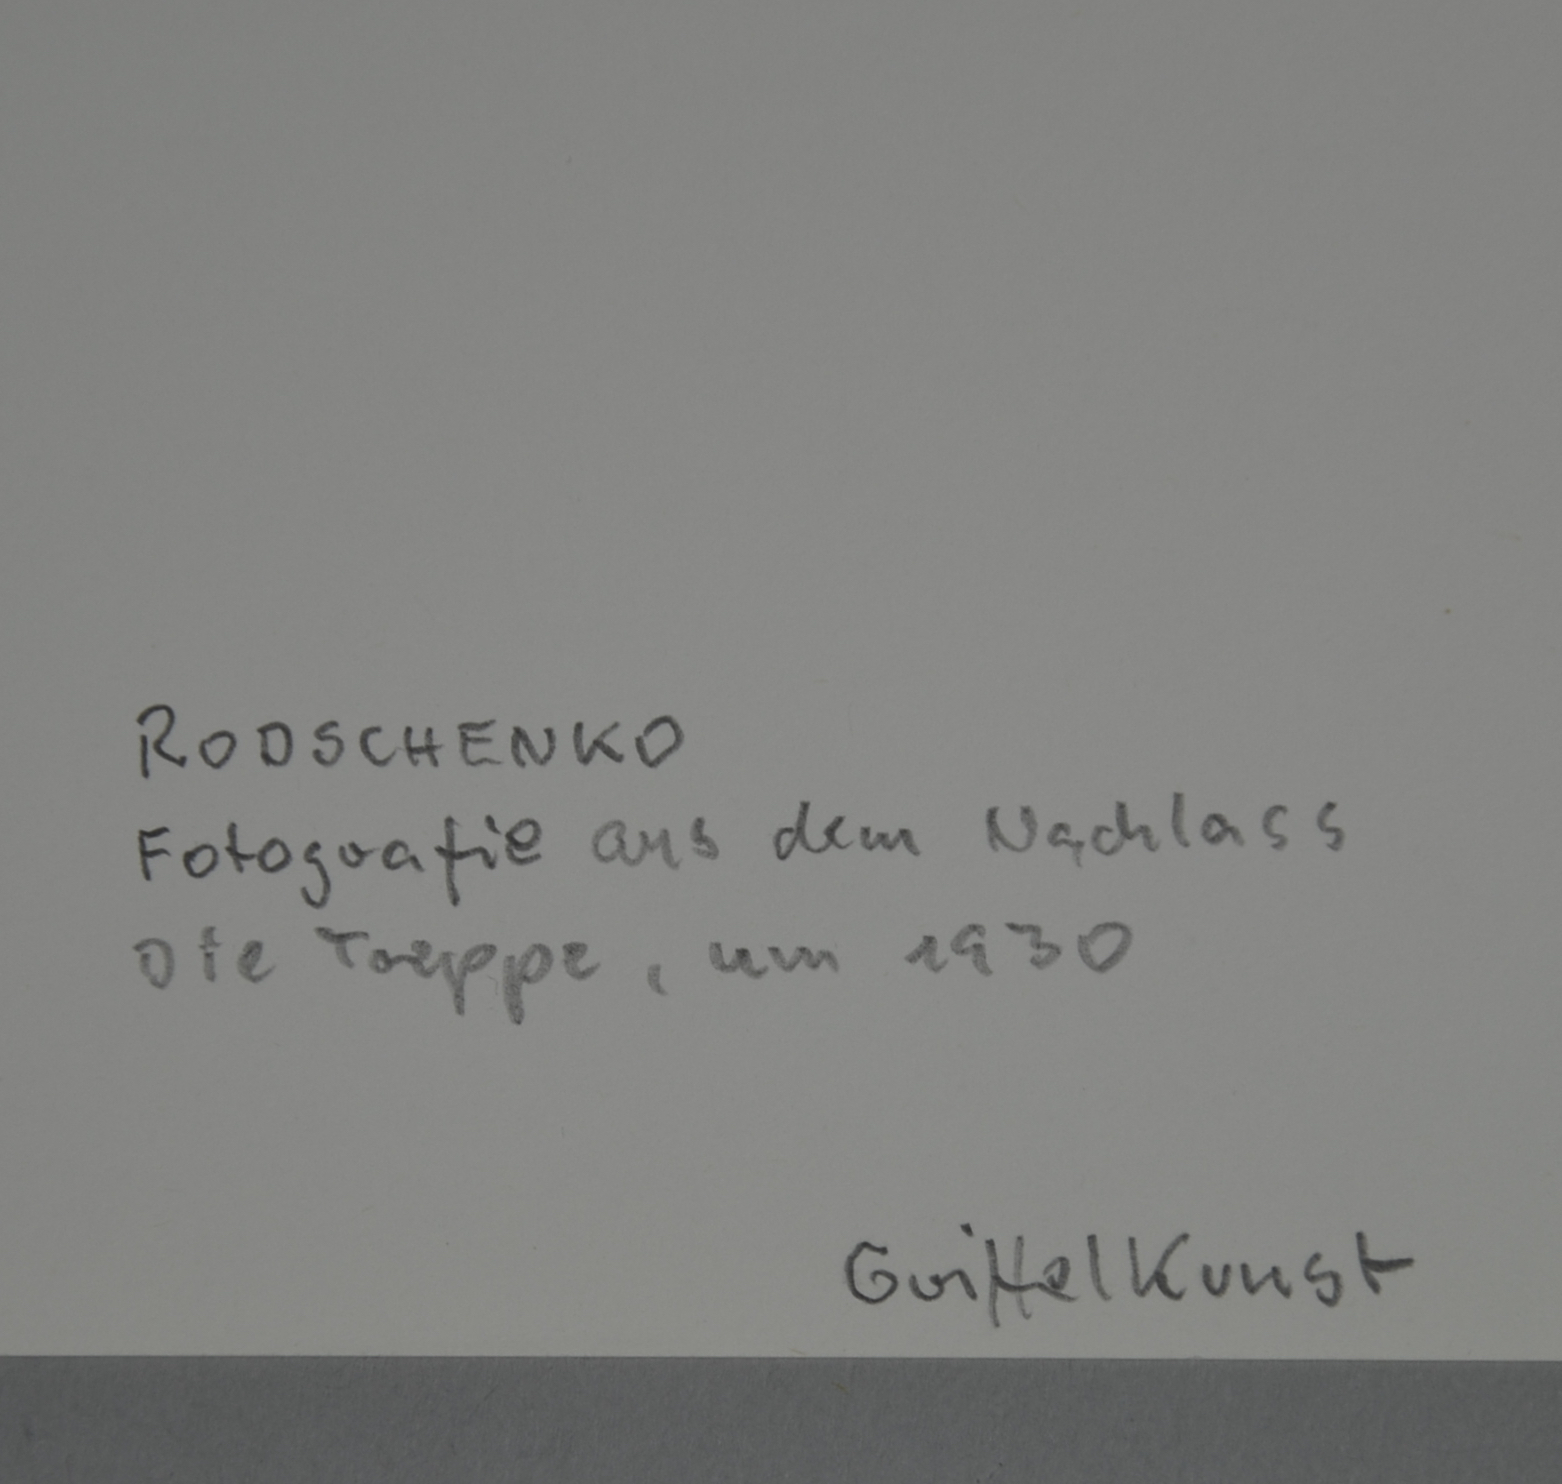 RODSCHENKO
Fotografie aus dem Nachlass
Die Treppe, um 1930
Griffelkunst